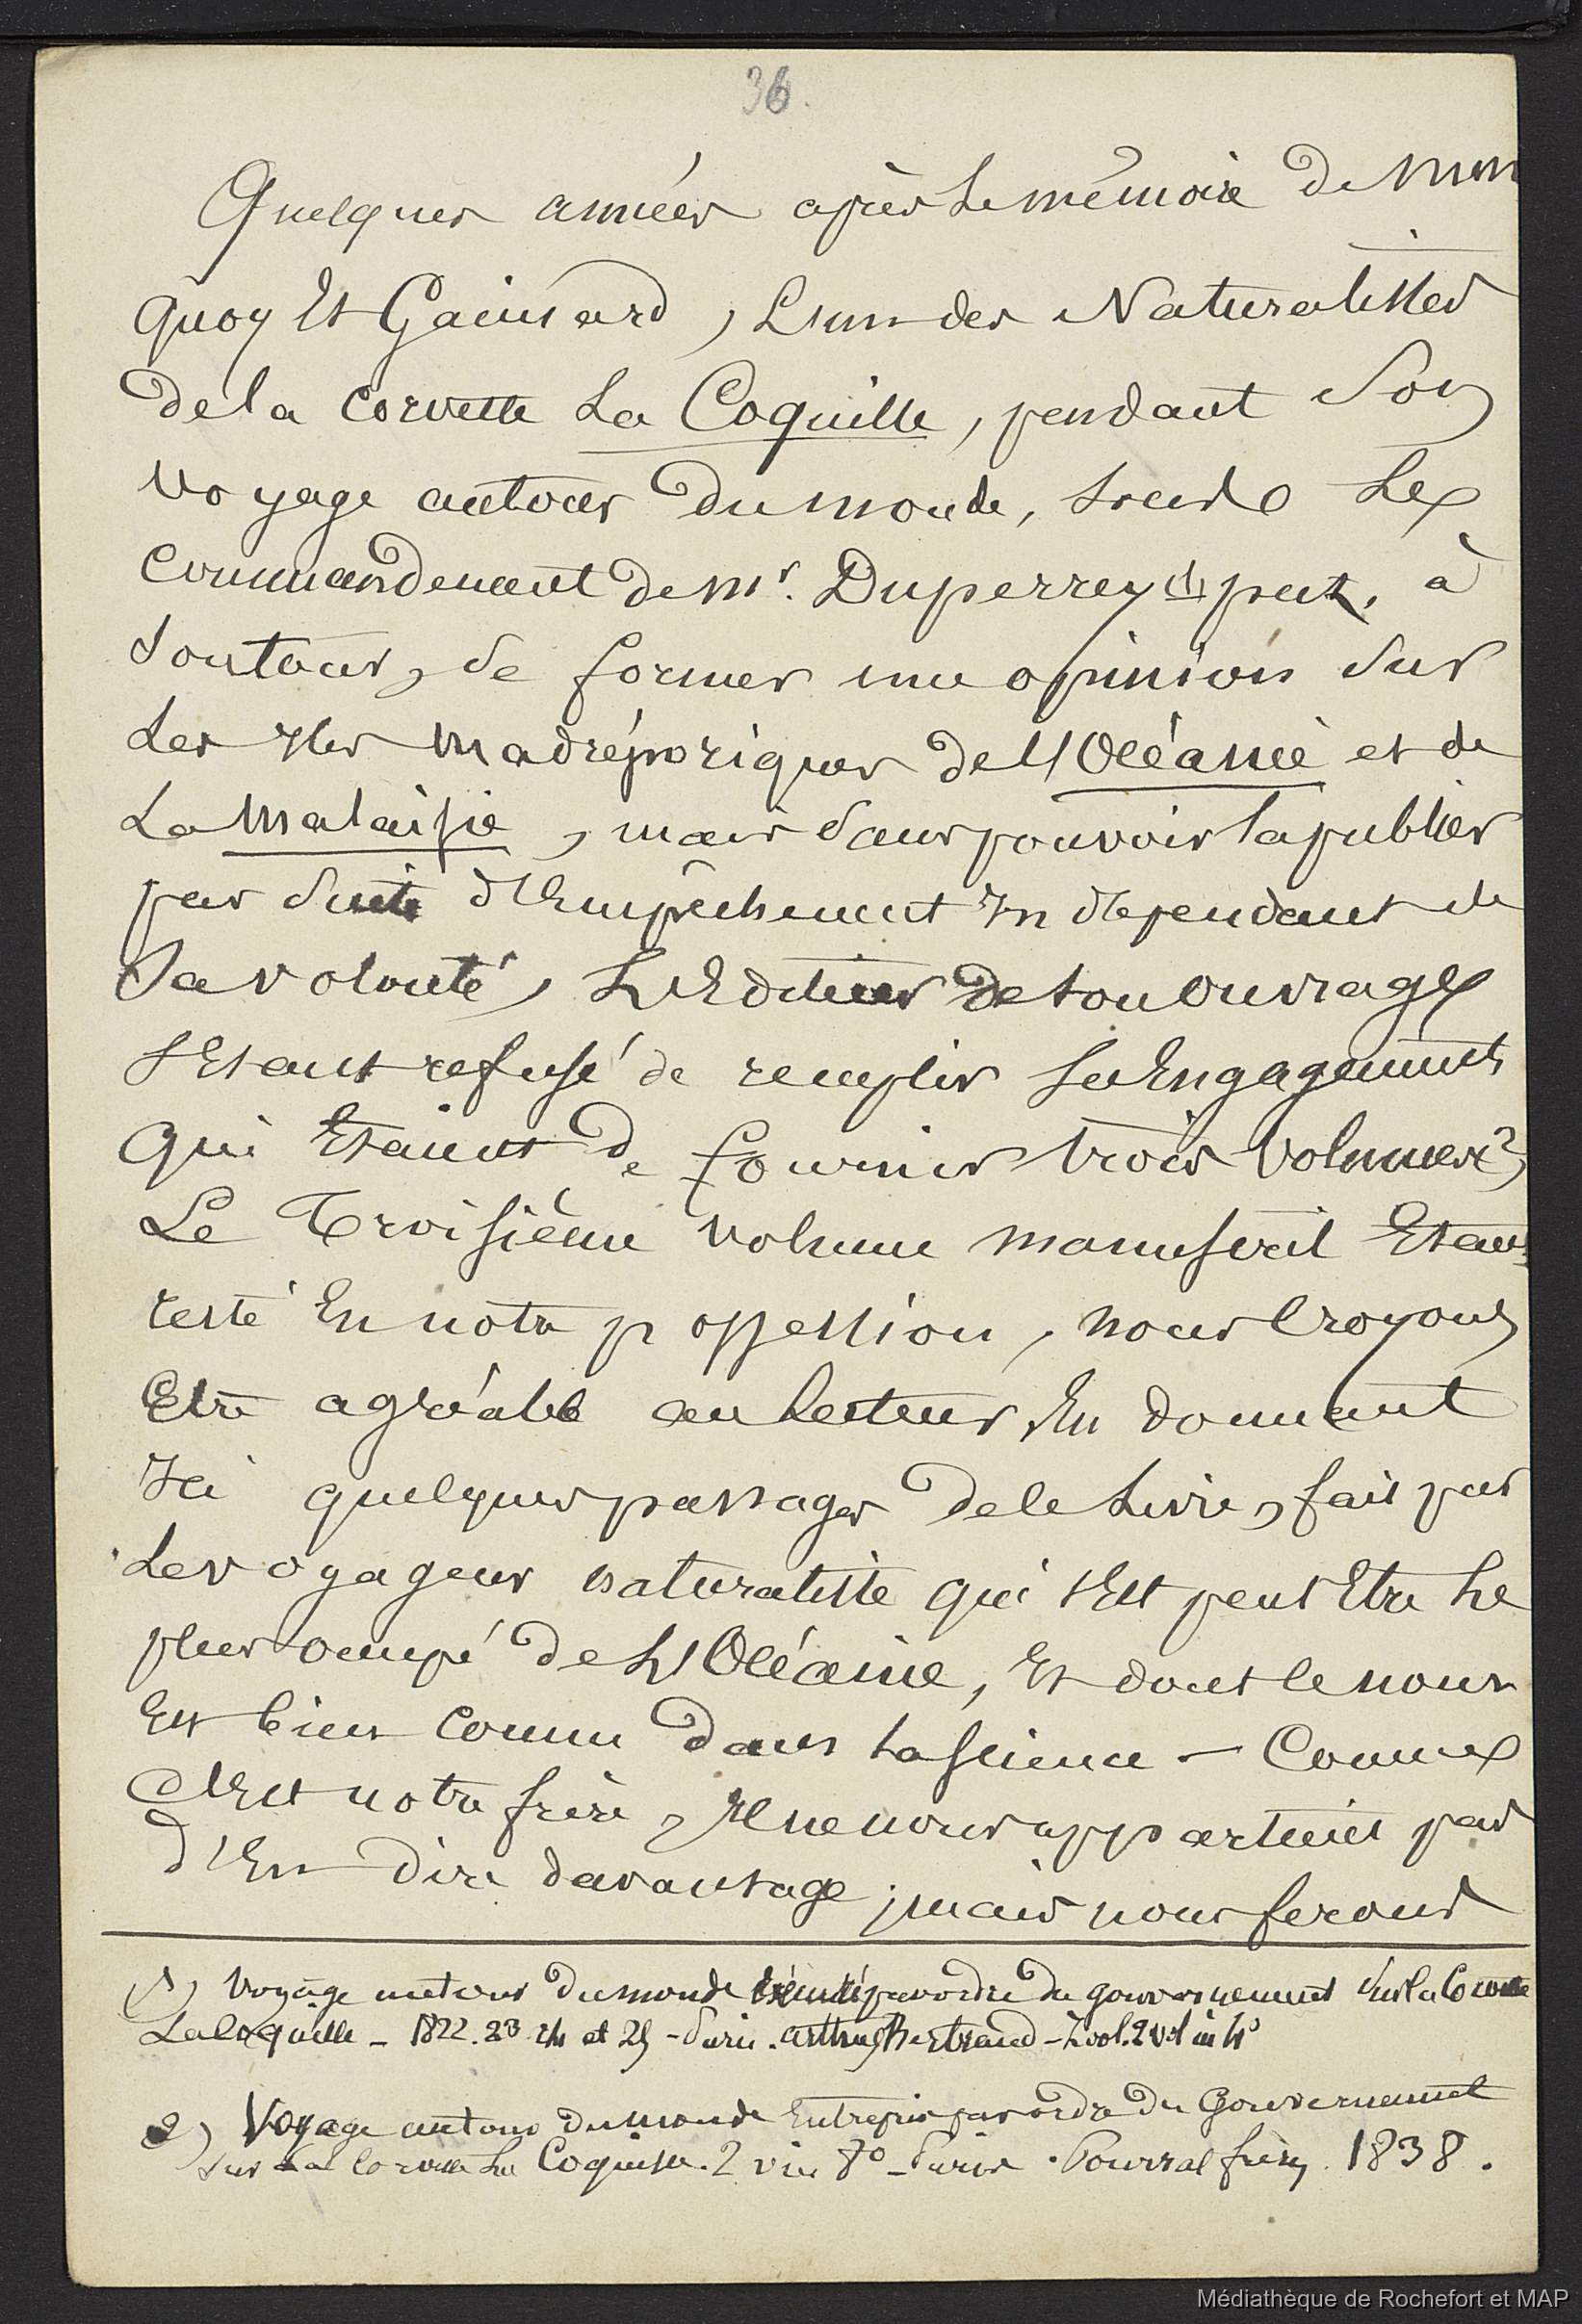 36.
Quelques années après le mémoire de Mm
quoy Et Gaimard, L'un des Naturalistes
de la corvette La Coquille, pendant son
voyage autour du monde, sous Le
commandement de Mr. Duperrey (1) put, à
son tour, de former une opinion sur
Les Iles Madréporiques de L'Océanie et de
La Malaisie, mais sans pouvoir la publier
par suite d'Empêchement Indépendant de
sa volonté, L'Editeur de son ouvrage
s'Etant refusé de remplir ses Engagements
qui Etaient de fournir trois volumes 2)
Le Troisième volume manuscrit Etant
resté En notre possession, nous Croyons
Etre agréable au Lecteur En donnant
Ici quelques passages de ce Livre, fait par
Le voyageur naturaliste qui s'Est peut Etre Le
plus occupé de L'Océanie, Et dont le nom
Est bien connu dans La science – Comme
C'Est notre frère, Il ne nous appartient pas
d'En dire davantage ; mais nous ferons
1) Voyage autour du monde Exécuté par ordre du gouvernement sur la Corvette
La Coquille – 1822. 23. 24 et 25 – Paris. Arthus Bertrand – Zool. 2 vol in 4°
2) Voyage autour du monde Entrepris par ordre du Gouvernement
sur la Corvette La Coquille. 2 v in 8° – Paris. Pourrat frères. 1838.
Médiathèque de Rochefort et MAP